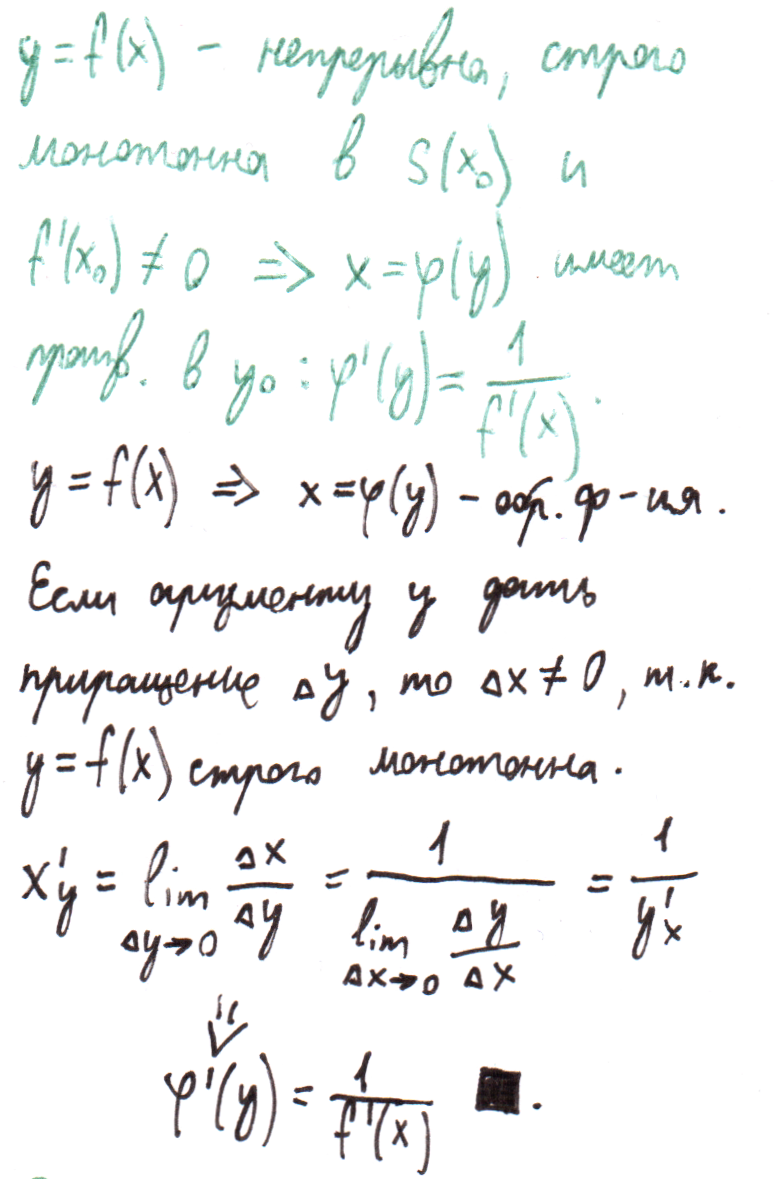 y = f(x) – непрерывна, строго
монотонна в S(x₀) и
f'(x₀) ≠ 0 => x = φ(y) имеет
произв. в y₀ : φ'(y) = 1/f'(x).
y = f(x) => x = φ(y) – обр. ф-ция.
Если аргументу y дать
приращение Δy, то Δx ≠ 0, т.к.
y = f(x) строго монотонна.
x'y = lim Δy→0 Δx/Δy = 1/(lim Δx→0 Δy/Δx) = 1/y'x
φ'(y) = 1/f'(x) ■.